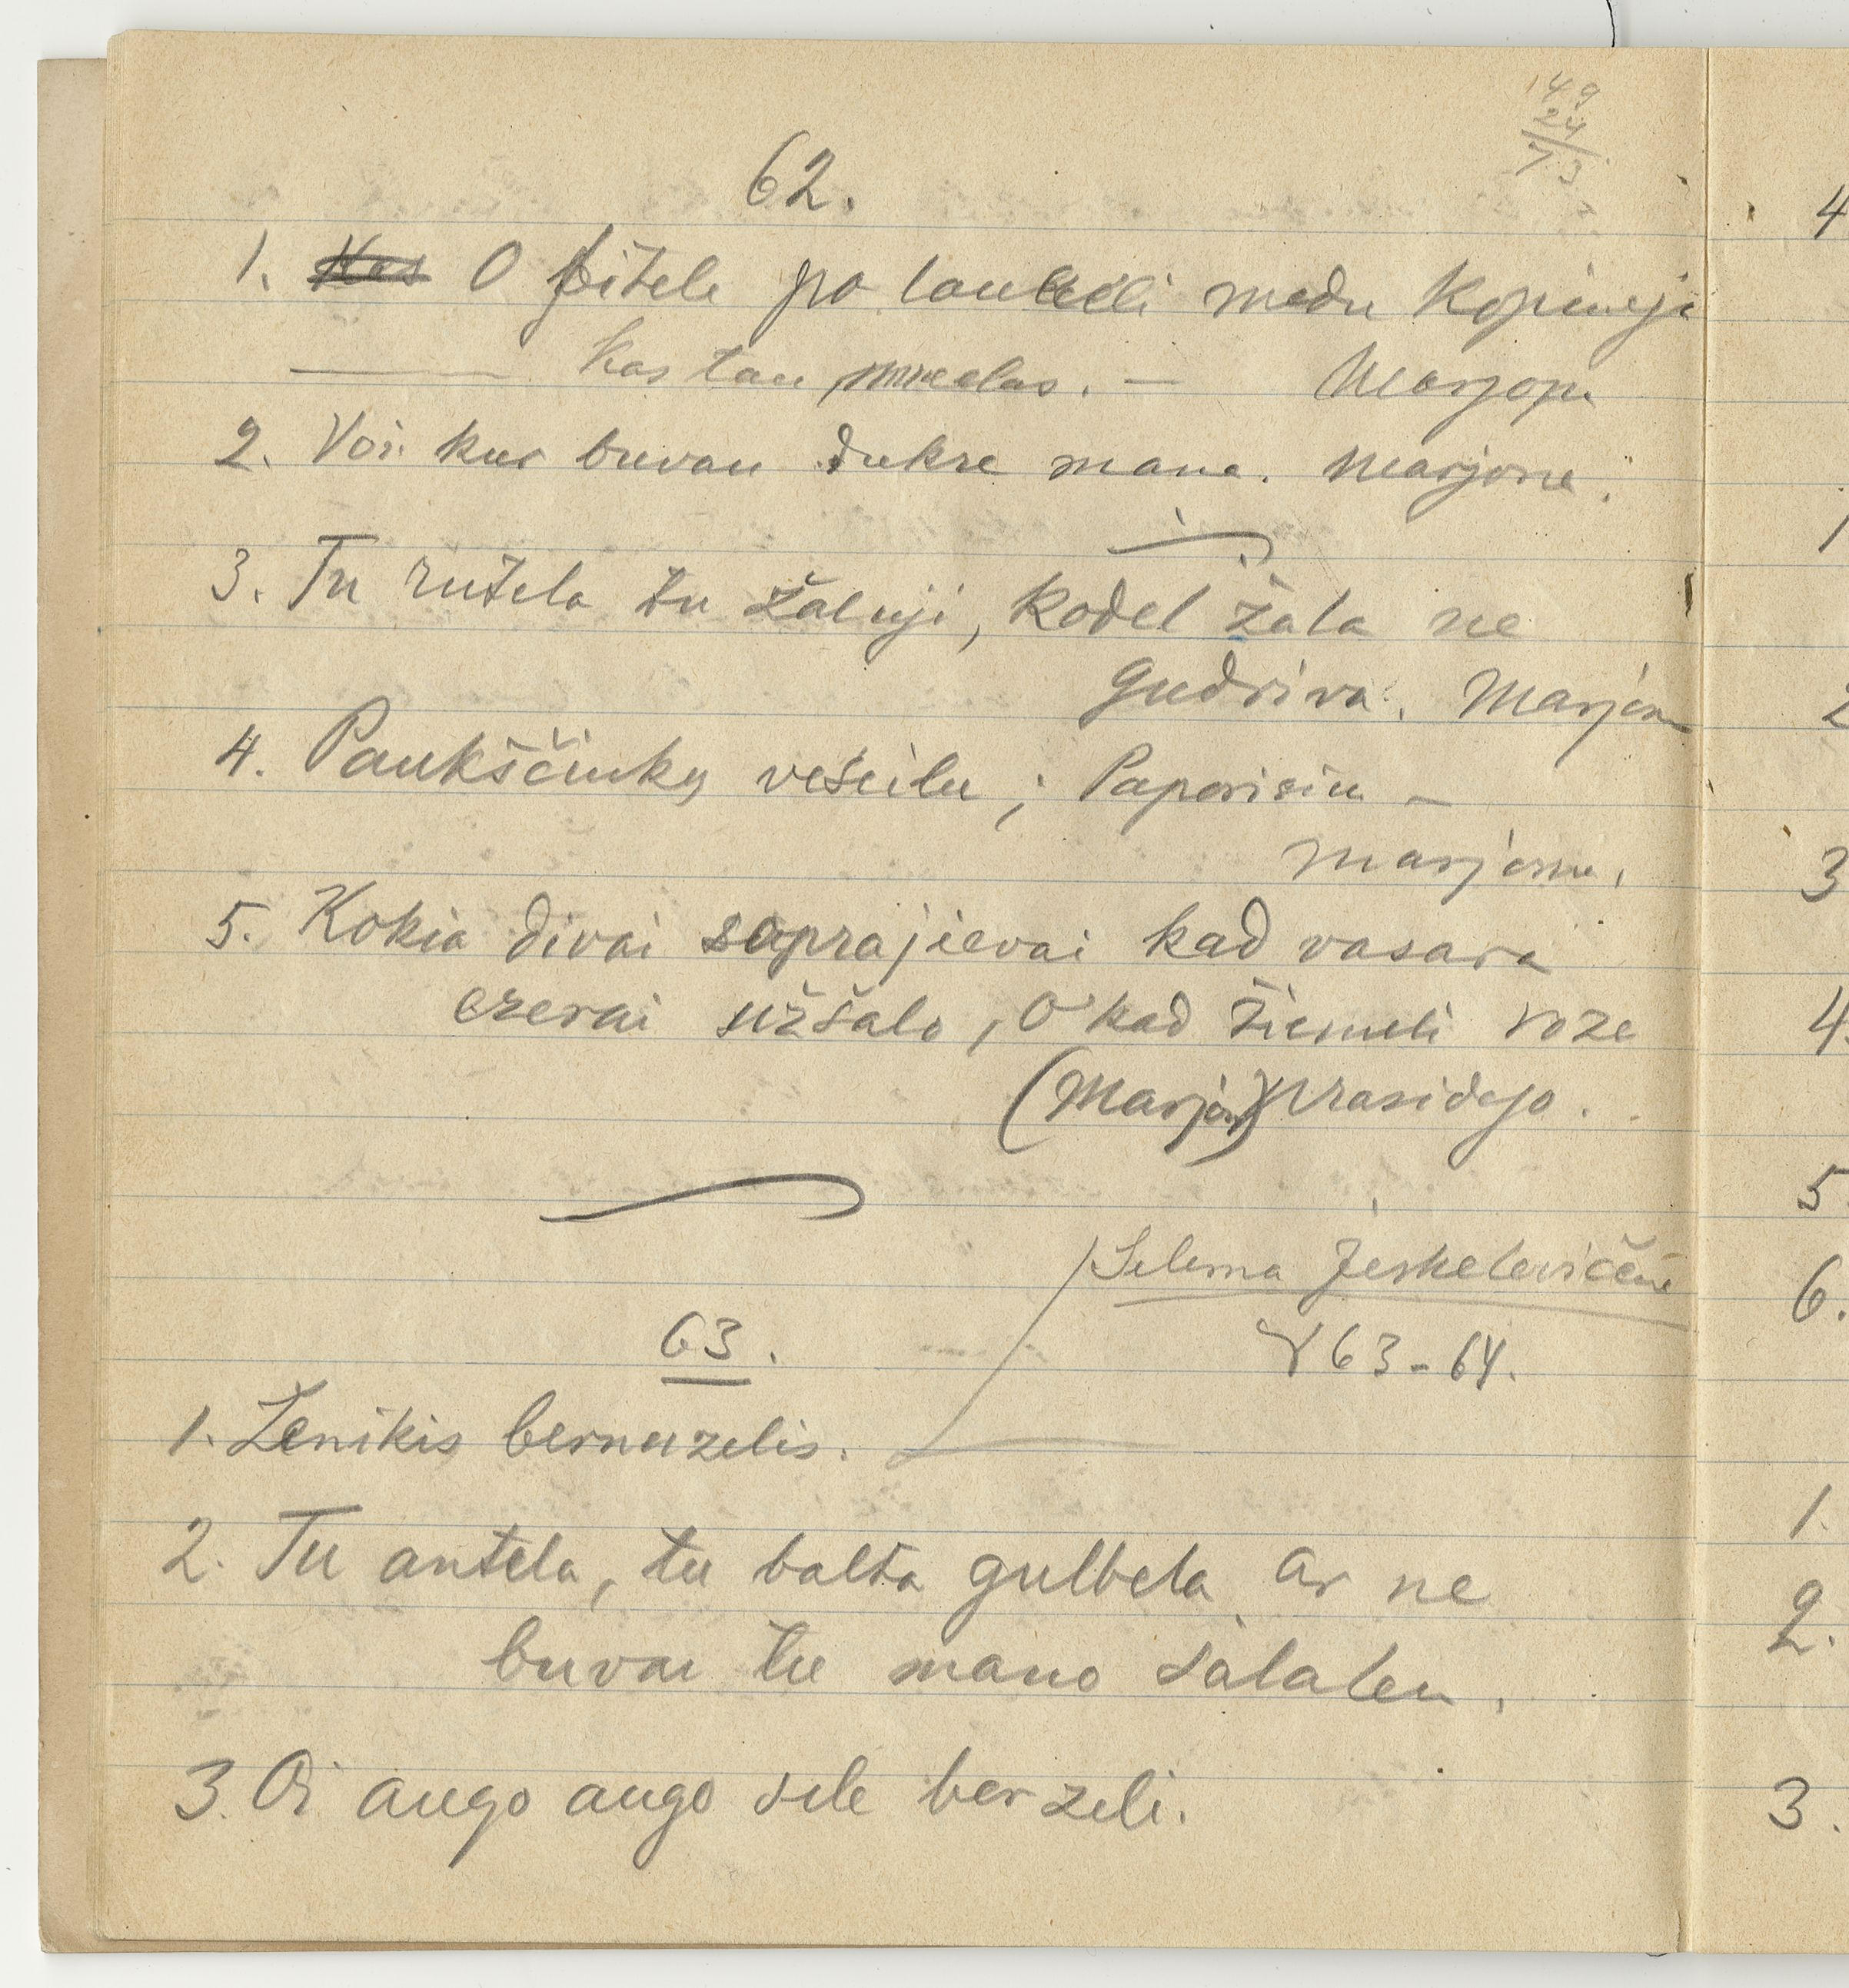 149
24
73
62.
1. Kas O bitele po laukeli medu kopineji
kas tau mielas. — Marjona
2. Voi kur buvau dukre mana. Marjona.
3. Tu rutela tu žaluji, kodel žala ne
gudriva. Marjona
4. Paukščiuky vešeilu; Paparisiu —
Marjona.
5. Kokia divai soprajievai kad vasara
ezerai užšalo, O kad žiemeli roze
(Marjon) prasidejo.
Selema Jeskelevičēne
63-64.
63.
1. Ženikis bernuzelis.
2. Tu antela, tu balta gulbela ar ne
buvai tu mano šalaleu.
3. Oi augo augo sile berzeli.
4
1
2
3
4.
5.
6.
1.
2.
3.